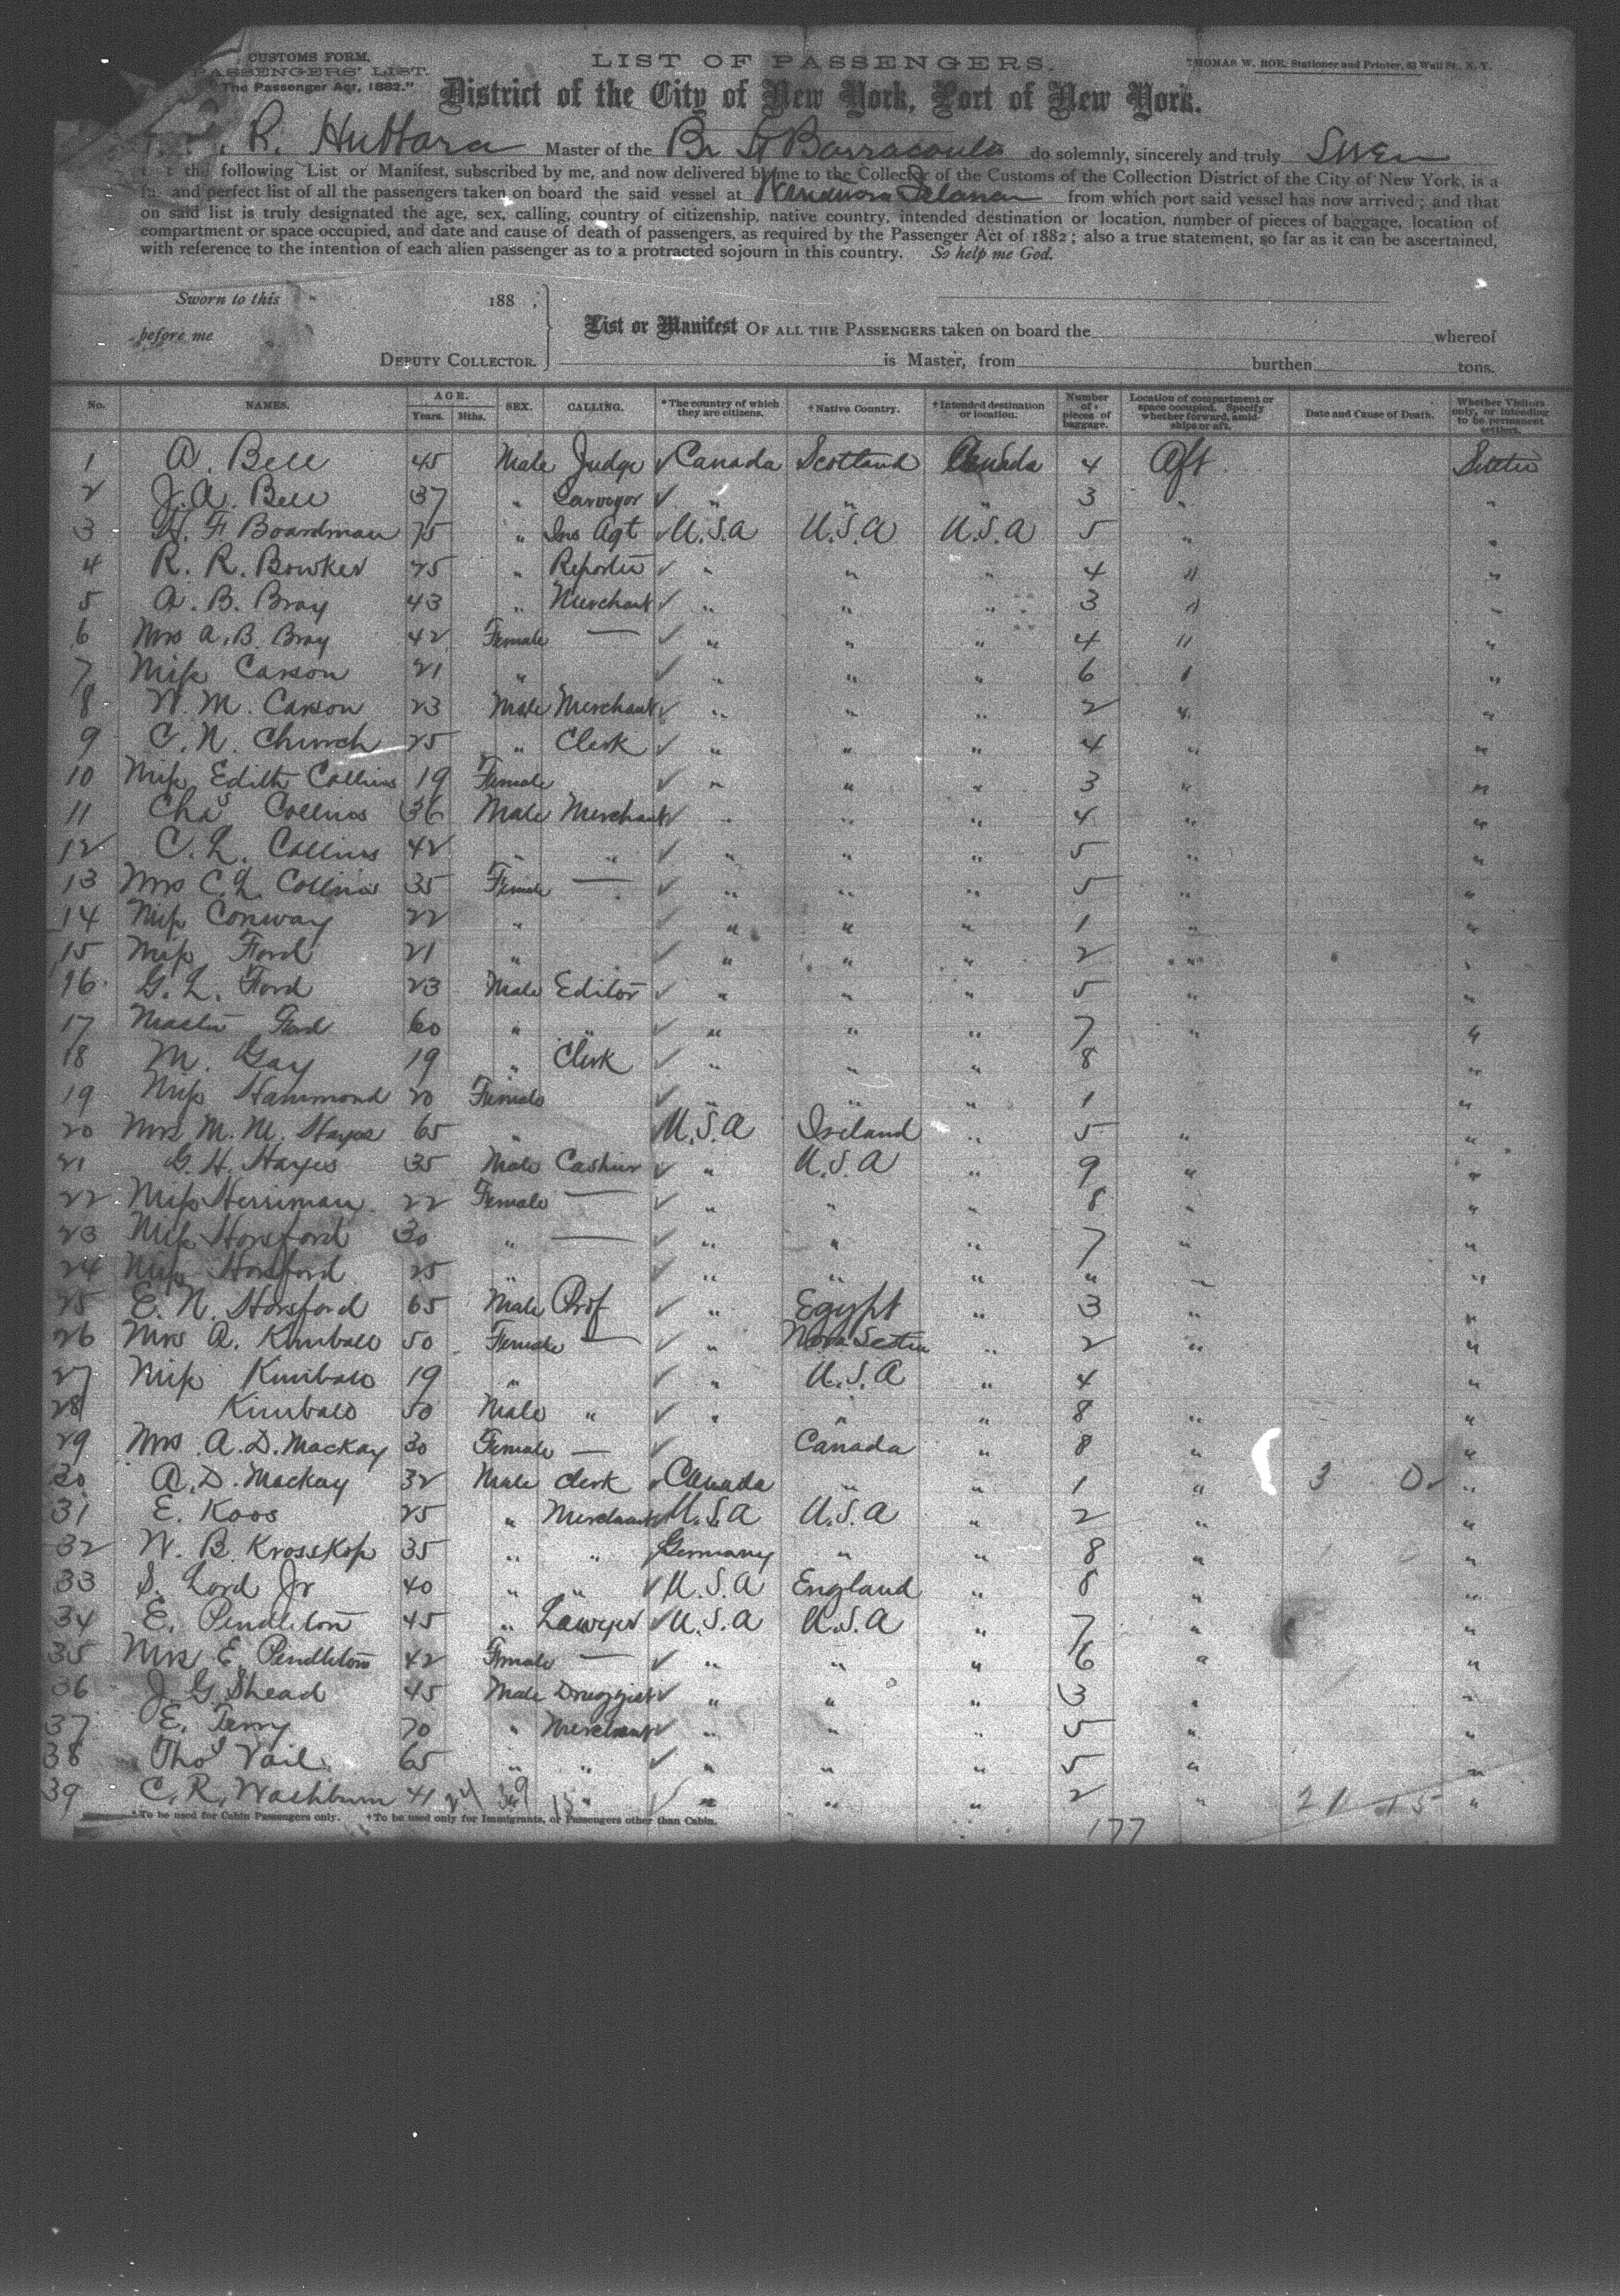 CUSTOMS FORM.
PASSENGERS' LIST.
"The Passenger Act, 1882."
LIST OF PASSENGERS.
THOMAS W. ROE, Stationer and Printer, 63 Wall St., N. Y.
District of the City of New York, Port of New York.
R. Hubbard Master of the Br St Barracouta do solemnly, sincerely and truly Swear
t the following List or Manifest, subscribed by me, and now delivered by me to the Collector of the Customs of the Collection District of the City of New York, is a
and perfect list of all the passengers taken on board the said vessel at from which port said vessel has now arrived; and that
on said list is truly designated the age, sex, calling, country of citizenship, native country, intended destination or location, number of pieces of baggage, location of
compartment or space occupied, and date and cause of death of passengers, as required by the Passenger Act of 1882; also a true statement, so far as it can be ascertained,
with reference to the intention of each alien passenger as to a protracted sojourn in this country. So help me God.
Sworn to this 188 ,
before me
DEPUTY COLLECTOR.
List or Manifest OF ALL THE PASSENGERS taken on board the whereof
is Master, from burthen tons.
No. NAMES. AGE. Years. Mths. SEX. CALLING. *The country of which they are citizens. †Native Country. †Intended destination or location. Number of pieces of baggage. Location of compartment or space occupied. Specify whether forward, amidships or aft. Date and Cause of Death. Whether Visitors only, or intending to be permanent settlers.
1 A. Bell 45 Male Judge ✓ Canada Scotland Canada 4 Aft
2 J. A. Bell 37 " Surveyor ✓ " " " 3 " "
3 H. F. Boardman 75 " Ins Agt ✓ U.S.A U.S.A U.S.A 5 " "
4 R. R. Bowker 45 " Reporter ✓ " " " 4 " "
5 A. B. Bray 43 " Merchant ✓ " " " 3 " "
6 Mrs A. B. Bray 42 Female — ✓ " " " 4 " "
7 Miss Carson 21 " ✓ " " " 6 " "
8 W. M. Carson 23 Male Merchant ✓ " " " 2 " "
9 C. N. Church 25 " Clerk ✓ " " " 4 " "
10 Miss Edith Collins 19 Female ✓ " " " 3 " "
11 Chas Collins 36 Male Merchant ✓ " " " 4 " "
12 C. L. Collins 42 " " ✓ " " " 5 " "
13 Mrs C. L. Collins 35 Female — ✓ " " " 5 " "
14 Miss Conway 22 " ✓ " " " 1 " "
15 Miss Ford 21 " ✓ " " " 2 " "
16 G. L. Ford 23 Male Editor ✓ " " " 5 " "
17 Master Ford 60 " " ✓ " " " 7 " "
18 M. Gay 19 " Clerk ✓ " " " 8 "
19 Miss Hammond 20 Female ✓ " " " 1 "
20 Mrs M. M. Hayes 65 " U.S.A Ireland " 5 " "
21 G. H. Hayes 35 Male Cashier ✓ " U.S.A " 9 " "
22 Miss Herriman 22 Female — ✓ " " " 8 " "
23 Miss Horsford 30 " — ✓ " " " 7 " "
24 Miss Horsford 25 " ✓ " " " " "
25 E. N. Horsford 65 Male Prof ✓ " Egypt " 3 " "
26 Mrs A. Kimball 50 Female — ✓ " Nova Scotia " 2 " "
27 Miss Kimball 19 " ✓ " U.S.A " 4 "
28 Kimball 50 Male " ✓ " " " 8 " "
29 Mrs A. D. Mackay 30 Female — ✓ Canada " 8 " "
30 A. D. Mackay 32 Male clerk ✓ Canada " " 1 " "
31 E. Koos 25 " Merchant ✓ U.S.A U.S.A " 2 " "
32 W. B. Krosskop 35 " " Germany " " 8 " "
33 S. Lord Jr 40 " " ✓ U.S.A England " 8 " "
34 E. Pendleton 45 " Lawyer ✓ U.S.A U.S.A " 7 " "
35 Mrs E. Pendleton 42 Female — ✓ " " " 6 " "
36 J. G. Shead 45 Male Druggist ✓ " " " 3 " "
37 E. Terry 70 " Merchant ✓ " " " 5 " "
38 Thos Vail 65 " " ✓ " " " 5 " "
39 C. R. Washburn 41 " ✓ " " " 2 " "
*To be used for Cabin Passengers only. †To be used only for Immigrants, or Passengers other than Cabin.
177